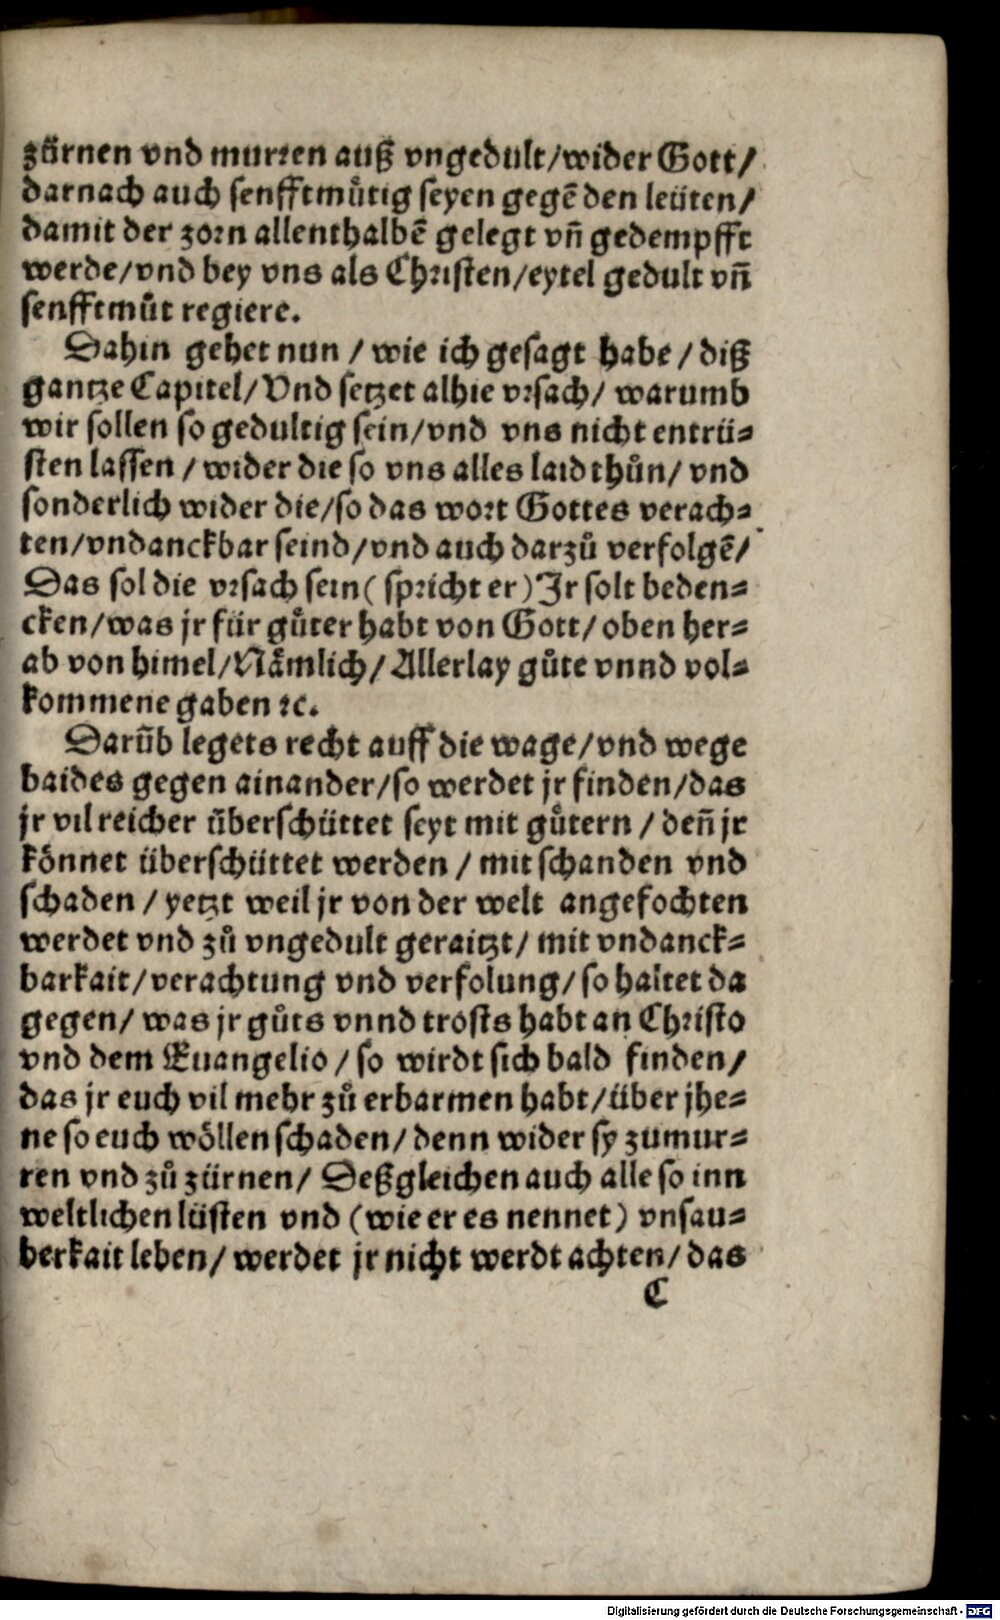 zürnen vnd murren auß vngedult/wider Gott/
darnach auch senfftmuͤtig seyen gegẽ den leüten/
damit der zorn allenthalbẽ gelegt vñ gedempfft
werde/vnd bey vns als Christen/eytel gedult vñ
senfftmuͤt regiere.
Dahin gehet nun / wie ich gesagt habe / diß
gantze Capitel/Vnd setzet alhie vrsach/ warumb
wir sollen so gedultig sein/vnd vns nicht entrü⸗
sten lassen / wider die so vns alles laid thuͦn/ vnd
sonderlich wider die/so das wort Gottes verach⸗
ten/vndanckbar seind/vnd auch darzuͦ verfolgẽ/
Das sol die vrsach sein( spricht er)Jr solt beden⸗
cken/was jr für guͤter habt von Gott/ oben her⸗
ab von himel/Naͤmlich/Allerlay guͤte vnnd vol⸗
kommene gaben ꝛc.
Darũb legets recht auff die wage/vnd wege
baides gegen ainander/so werdet jr finden/das
jr vil reicher überschüttet seyt mit guͤtern / deñ jr
koͤnnet überschüttet werden / mit schanden vnd
schaden / yetzt weil jr von der welt angefochten
werdet vnd zuͦ vngedult geraitzt/ mit vndanck⸗
barkait/verachtung vnd verfolung/so haltet da
gegen/ was jr guͦts vnnd trosts habt an Christo
vnd dem Euangelio / so wirdt sich bald finden/
das jr euch vil mehr zuͦ erbarmen habt/über jhe⸗
ne so euch woͤllen schaden/denn wider sy zumur⸗
ren vnd zuͦ zürnen/ Deßgleichen auch alle so inn
weltlichen lüsten vnd (wie er es nennet) vnsau⸗
berkait leben/ werdet jr nicht werdt achten/das
C
Digitalisierung gefördert durch die Deutsche Forschungsgemeinschaft - DFG